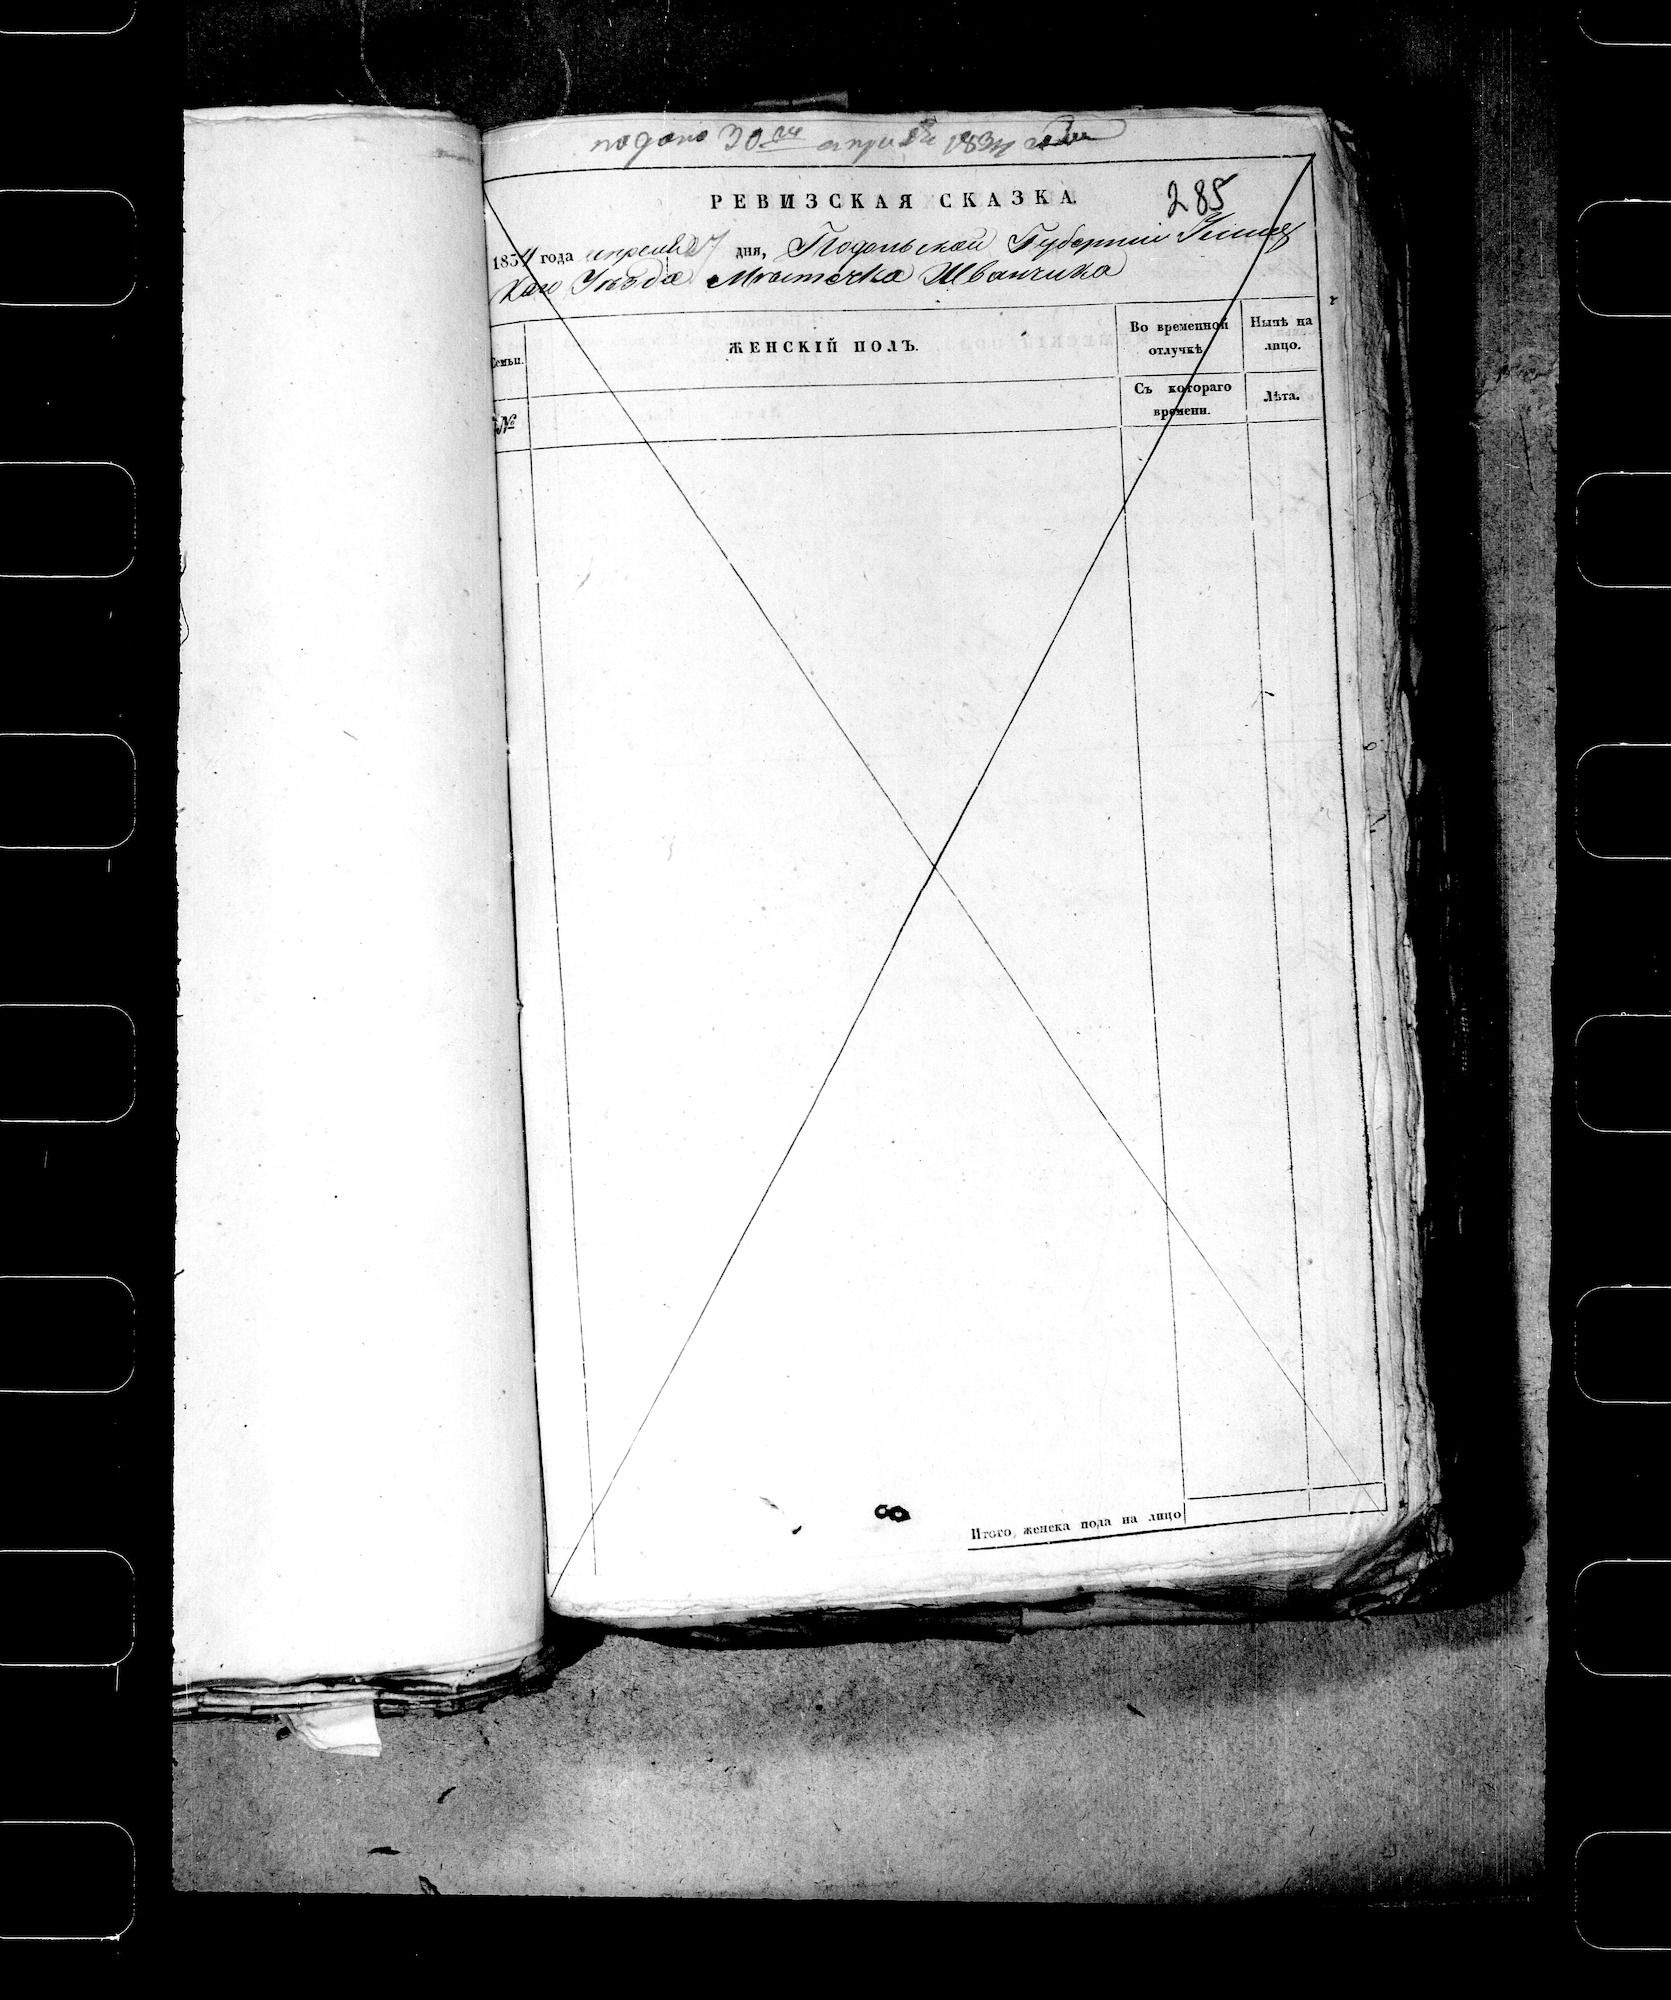 подано 30го апреля 1834 года
РЕВИЗСКАЯ СКАЗКА.
285
1834 года апреля 27 дня, Подольской Губернии Ушиц
каго Уѣзда Мѣстечка Жванчика
Семьи.
ЖЕНСКІЙ ПОЛЪ.
Во временной отлучкѣ
Нынѣ на лицо.
№
Съ котораго времени.
Лѣта.
Итого женска пола на лицо